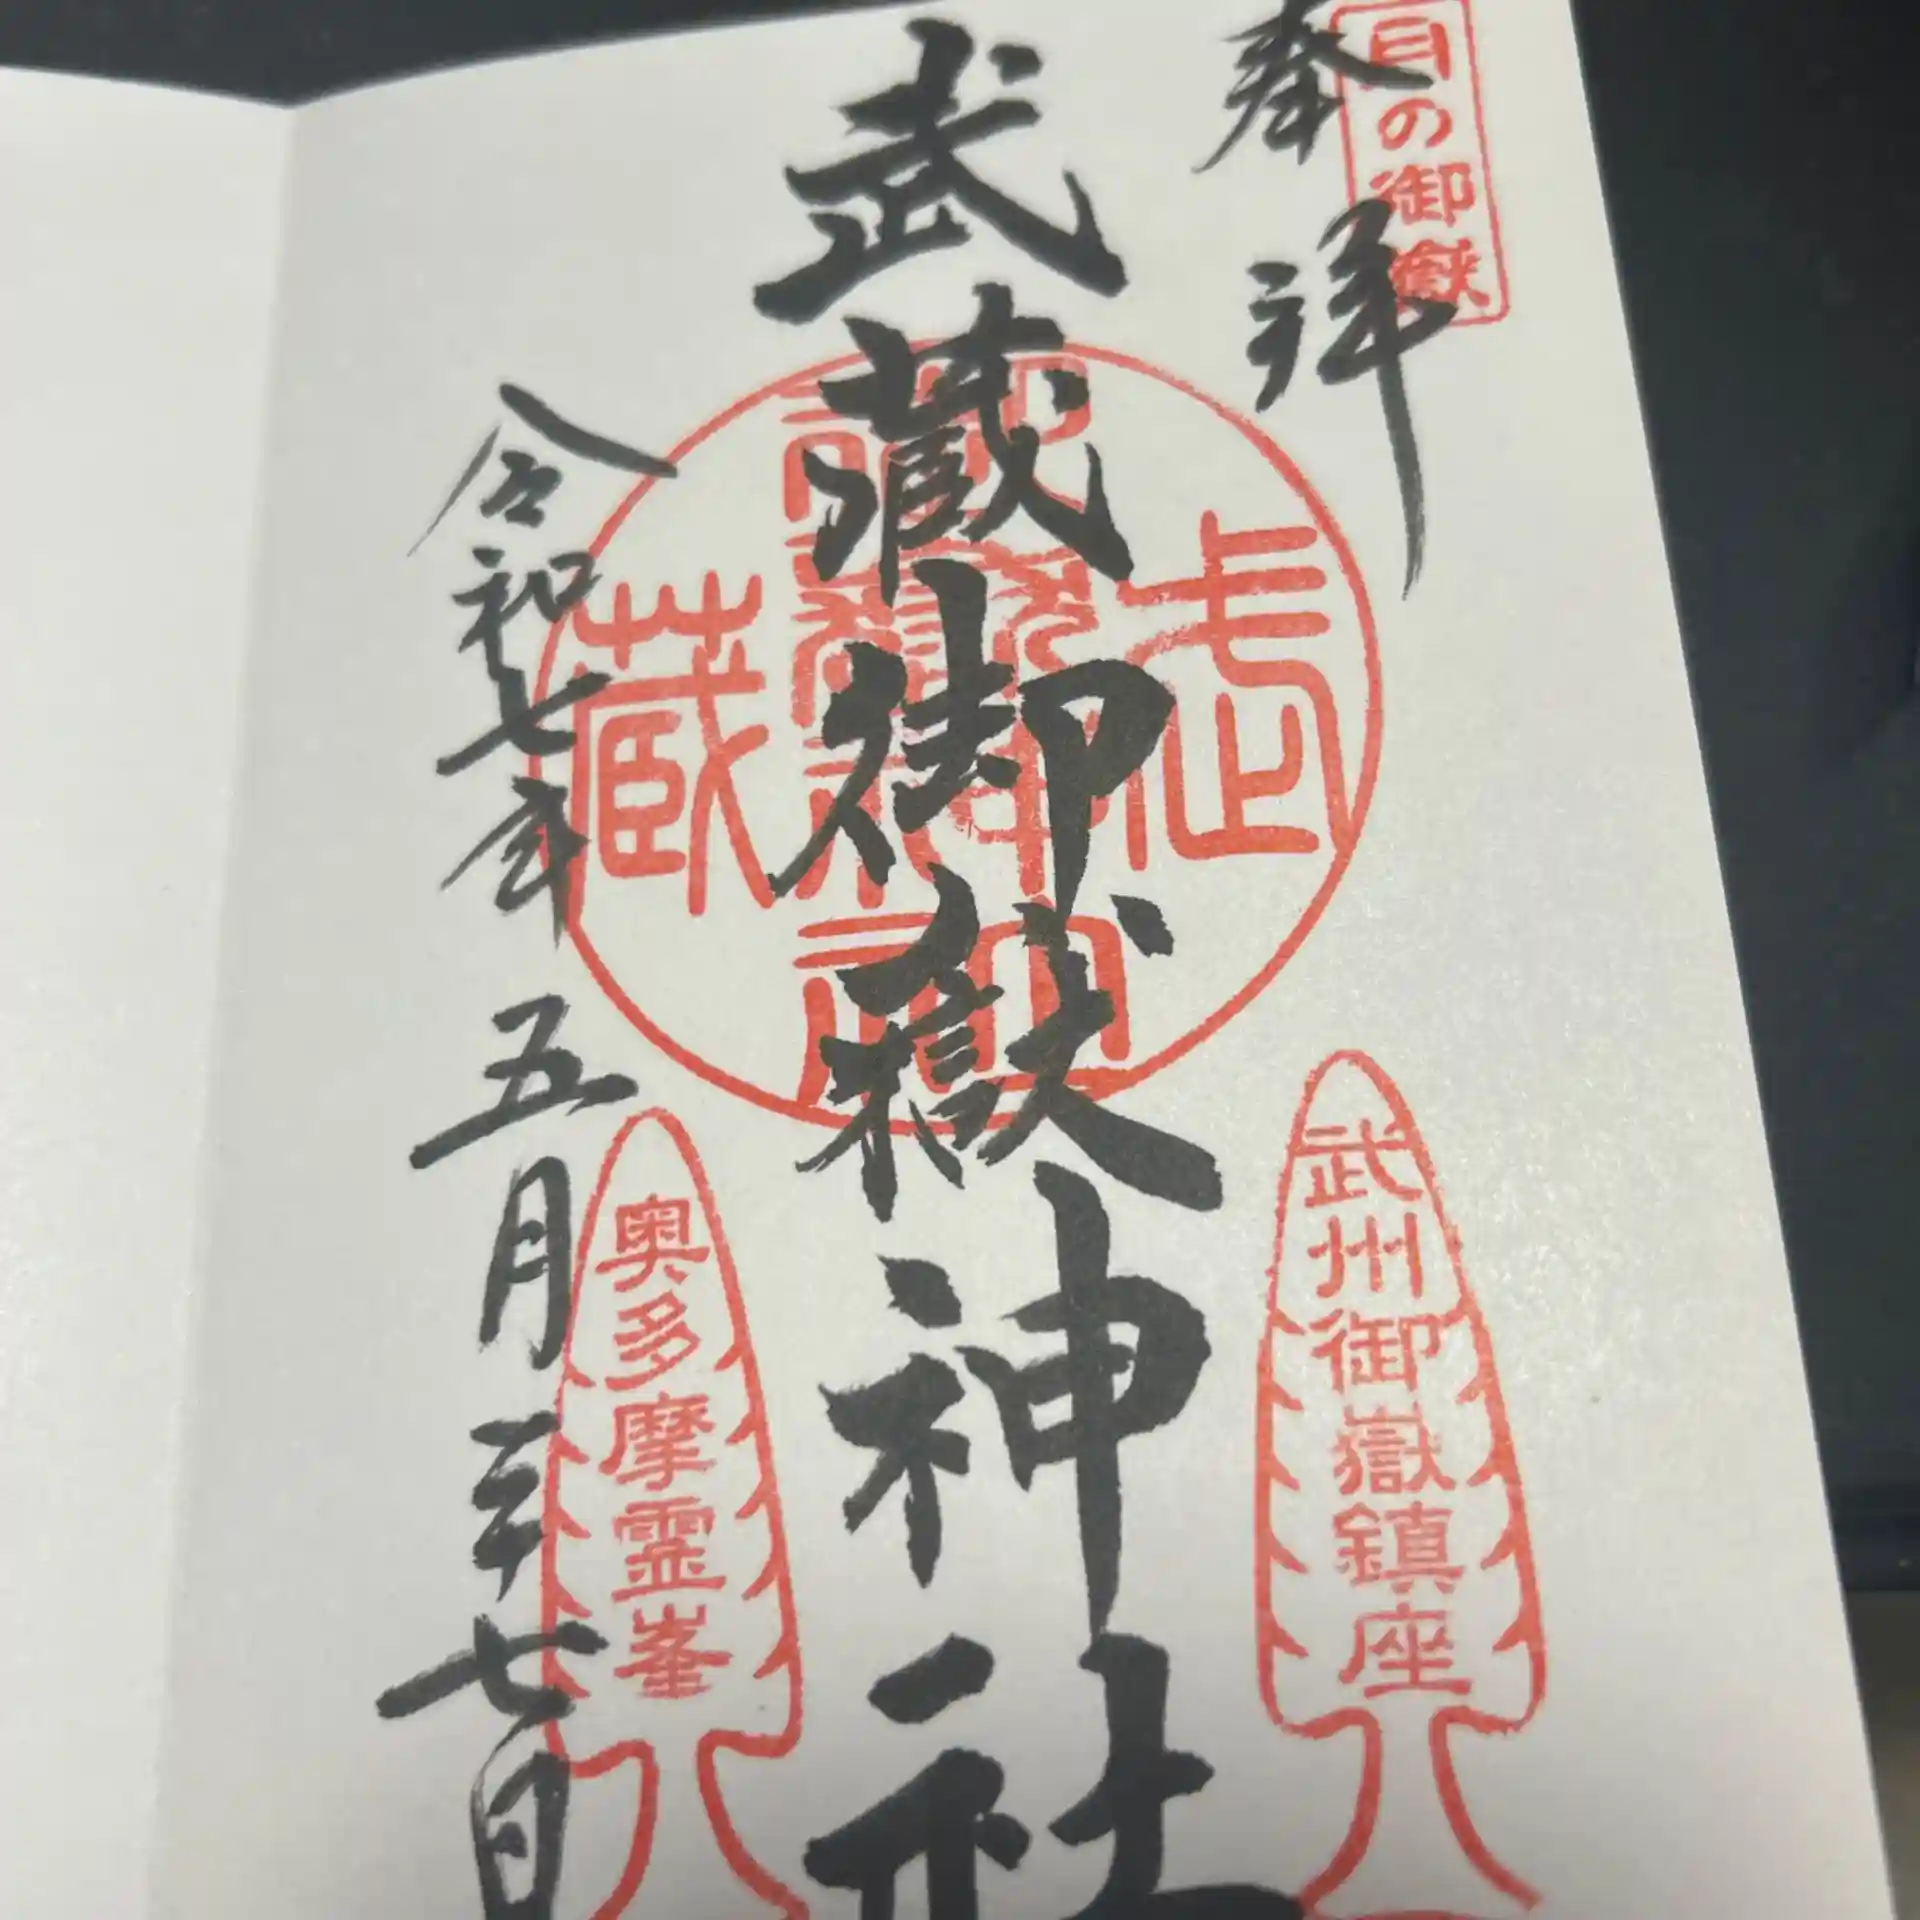 奉拝
日の御嶽
武州御嶽鎮座
武蔵御嶽神社
武蔵
奥多摩霊峯
令和七年五月二十七日